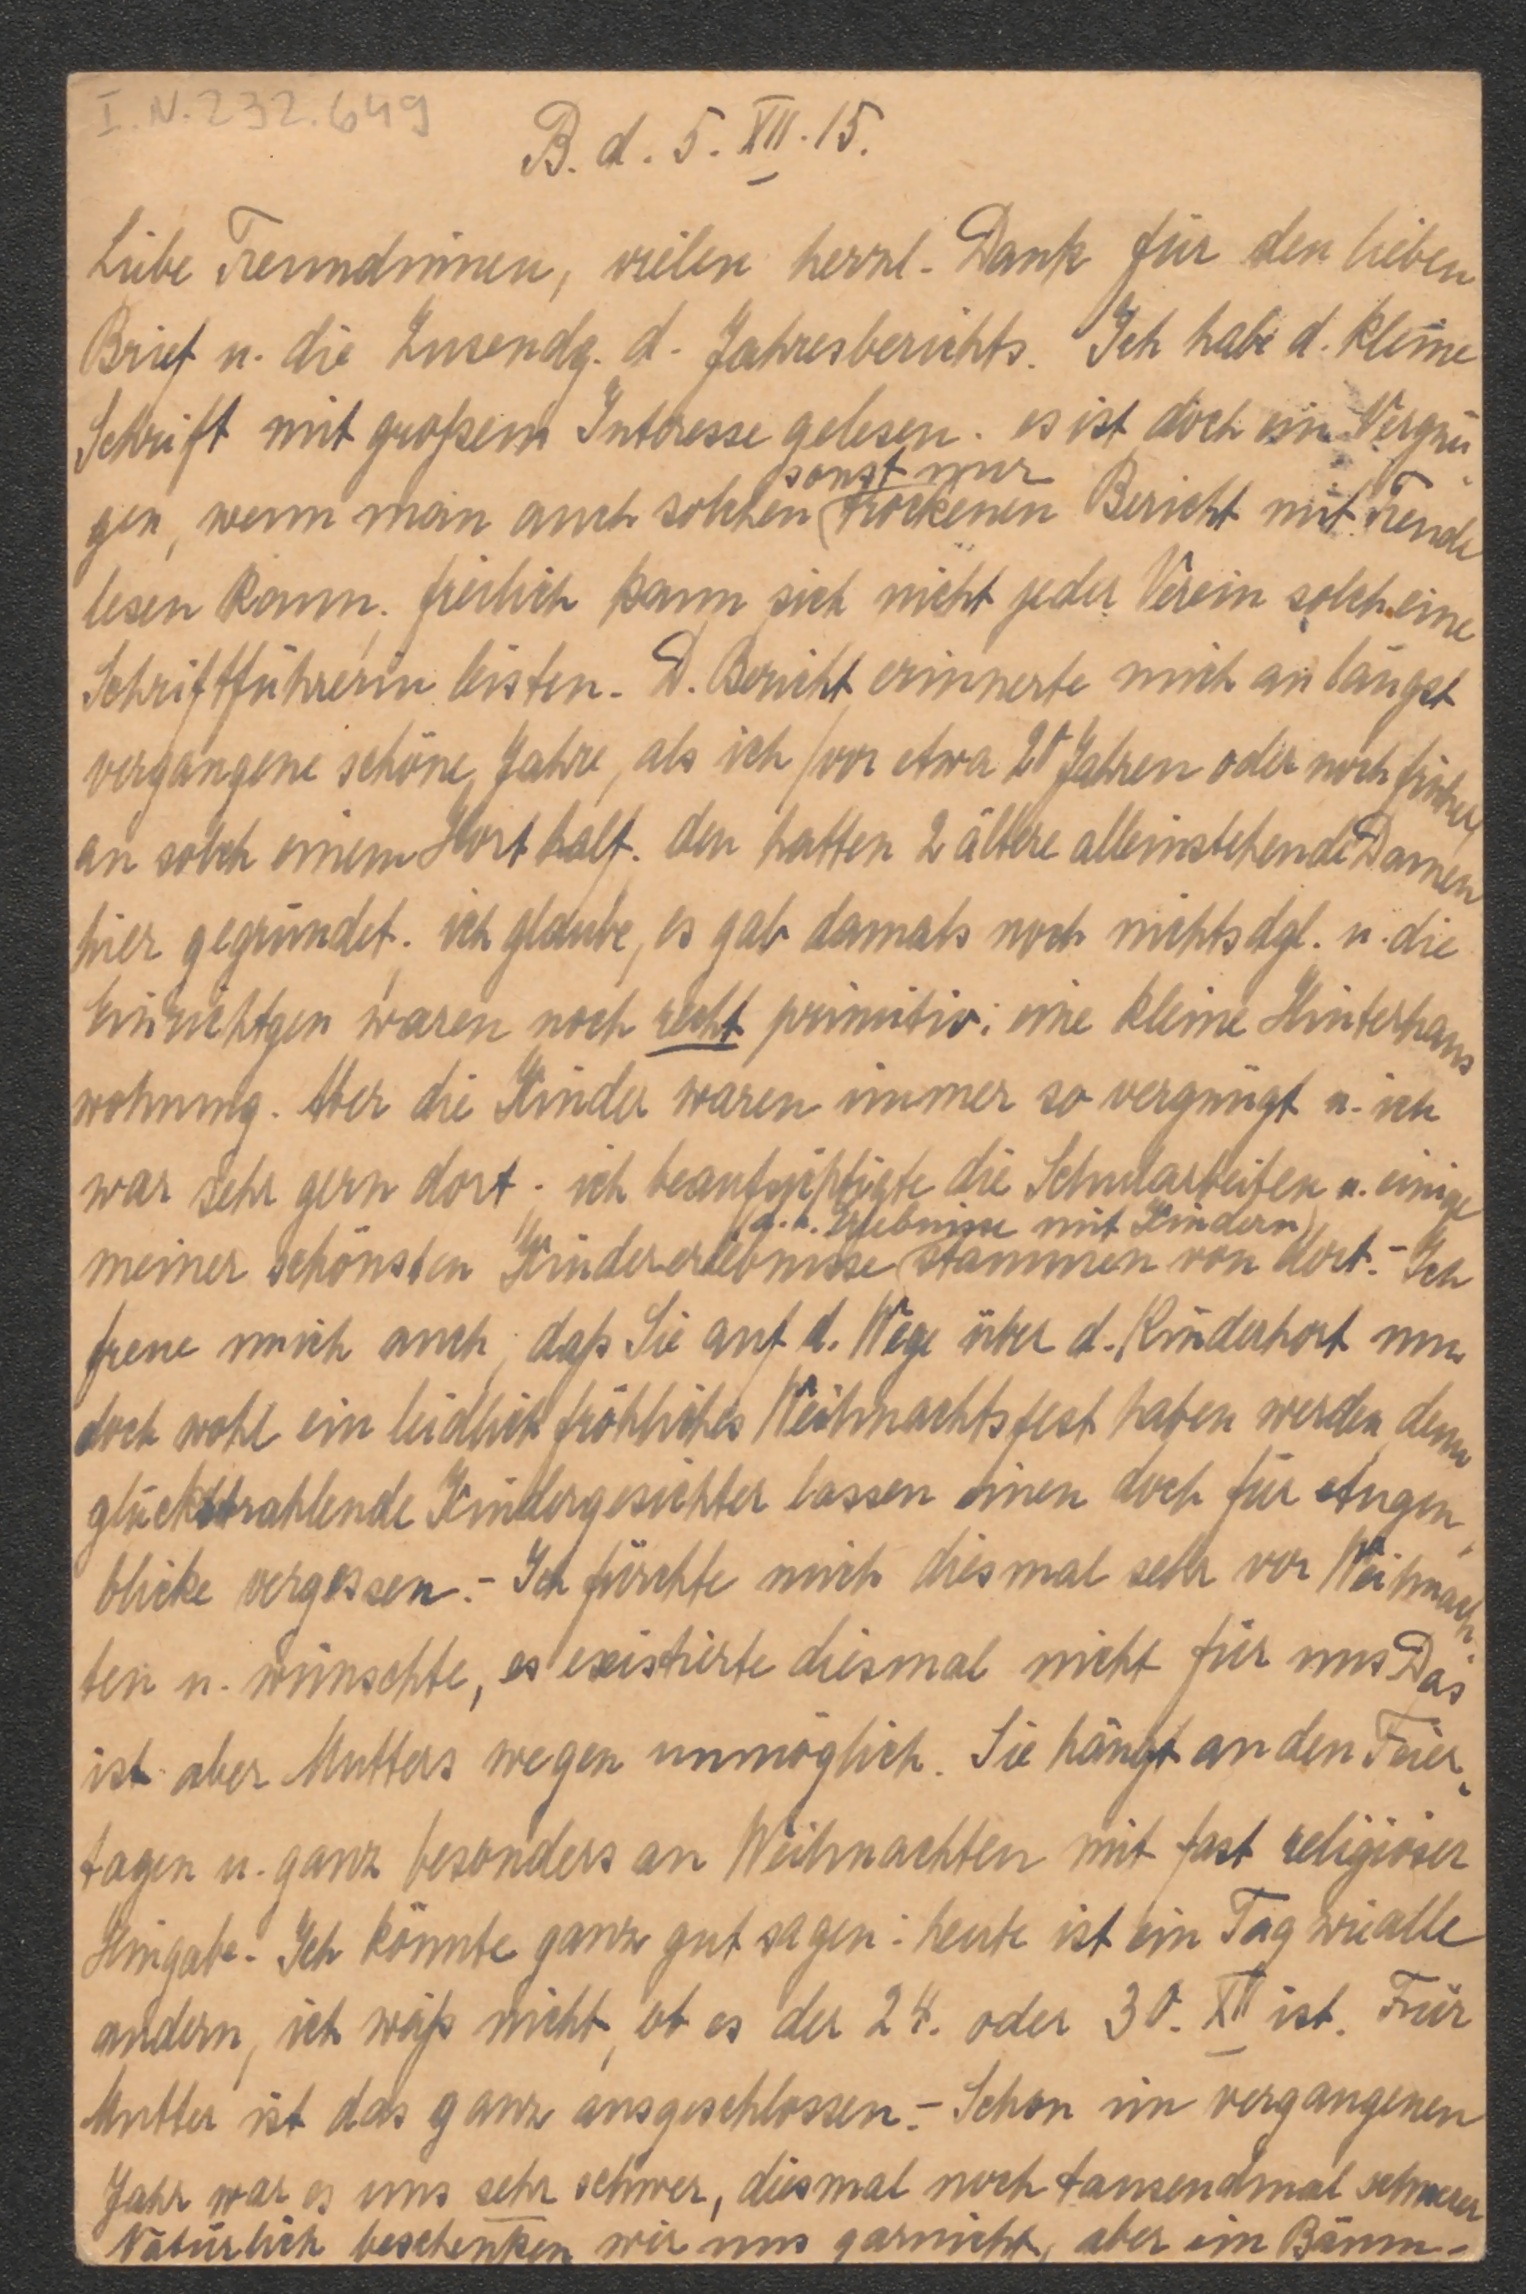 I.N. 232.649
B. d. 5. XII. 15.
Liebe Freundinnen, vielen herzl. Dank für den lieben
Brief u. die Zusendg. d. Jahresberichts. Ich habe d. kleine
Schrift mit großem Interesse gelesen. es ist doch ein Vergnü-
sonst nur
gen, wenn man auch solchen (trockenen Bericht mit Freude
lesen kann. freilich kann sich nicht jeder Verein solch eine
Schriftführerin leisten. D. Bericht erinnerte mich an längst
vergangene schöne Jahre, als ich (vor etwa 20 Jahren oder noch früher)
an solch einem Hort half. den hatten 2 ältere alleinstehende Damen
hier gegründet. ich glaube, es gab damals noch nichts dgl. u. die
Einrichtgen waren noch recht primitiv: eine kleine Hinterhaus
wohnung. Aber die Kinder waren immer so vergnügt u. ich
war sehr gern dort. ich beaufsichtigte die Schularbeiten u. einige
(d. h. Erlebnisse mit Kindern)
meiner schönsten "Kindererlebnisse stammen von dort. - Ich
freue mich auch, daß Sie auf d. Wege über d. Kinderhort nun
doch wohl ein leidlich fröhliches Weihnachtsfest haben werden, denn
glückstrahlende Kindergesichter lassen einen doch für Augen-
blicke vergessen. - Ich fürchte mich diesmal sehr vor Weihnach-
ten u. wünschte, es existierte diesmal nicht für uns Das
ist aber Mutters wegen unmöglich. Sie hängt an den Feier-
tagen u. ganz besonders an Weihnachten mit fast religiöser
Hingabe. Ich könnte ganz gut sagen: heute ist ein Tag wie alle
andern, ich weiß nicht, ob es der 24. oder 30. XII ist. Für
Mutter ist das ganz ausgeschlossen. - Schon im vergangenen
Jahr war es uns sehr schwer, diesmal noch tausendmal schwerer
Natürlich beschenken wir uns garnicht, aber ein Bäum-